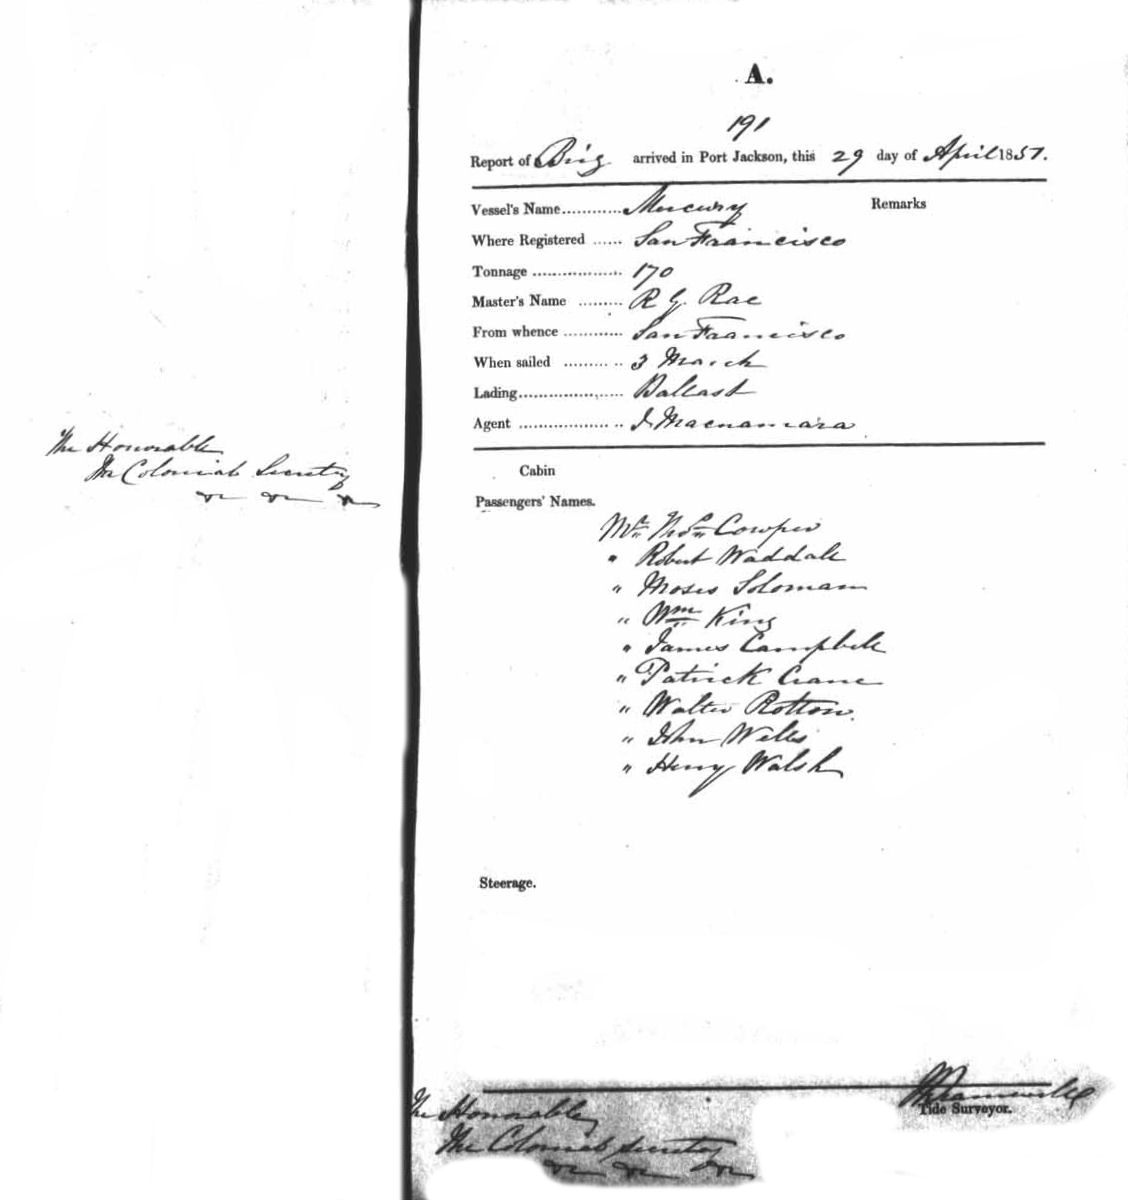 The Honorable
The Colonial Secretary
&c &c &c
A.
191
Report of Brig arrived in Port Jackson, this 29 day of April 1851.
Vessel's Name............ Mercury Remarks
Where Registered ...... San Francisco
Tonnage .................. 170
Master's Name ......... R G. Rae
From whence ............ San Francisco
When sailed ......... .. 3 March
Lading..................... Ballast
Agent .................. .. J Macnamara
Cabin
Passengers' Names.
Mr Thos Cowper
" Robert Waddell
" Moses Soloman
" Wm King
" James Campbell
" Patrick Crane
" Walter Rotton
" John Wells
" Henry Walsh
Steerage.
Tide Surveyor.
The Honorable
The Colonial Secretary
&c &c &c